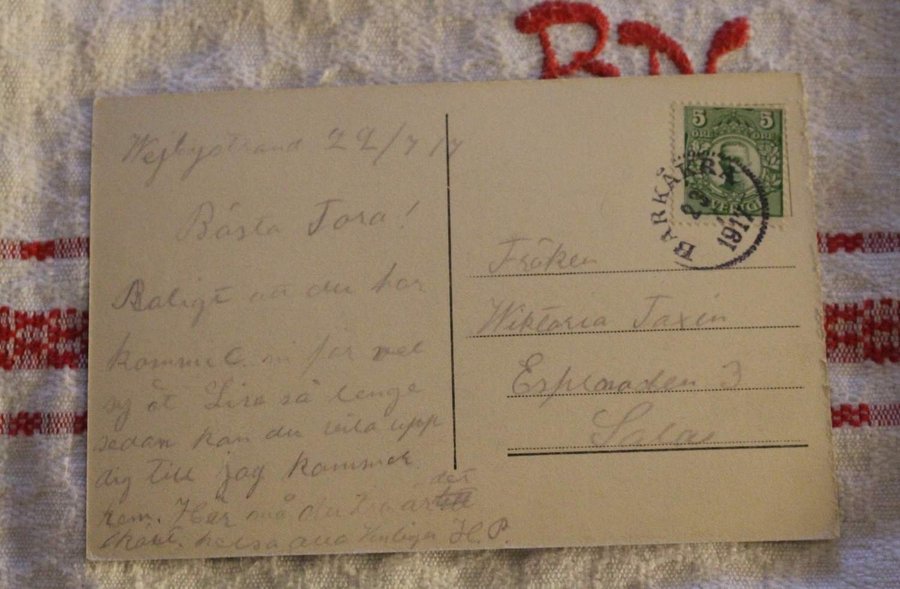 BN
Wejbystrand 22/7 17
Bästa Tora!
Roligt att du har
kommet. nu får vel
sy åt Lisa så lenge
sedan kan du vila upp
dig till jag kommer
hem. Här må du tro är det
hälsa alla Venligen H.P.
5 5
ÖRE ÖRE
SVERIGE
BARKÅKRA
23
1917
Fröken
Wiktoria Taxén
Esplanaden 3
Sala